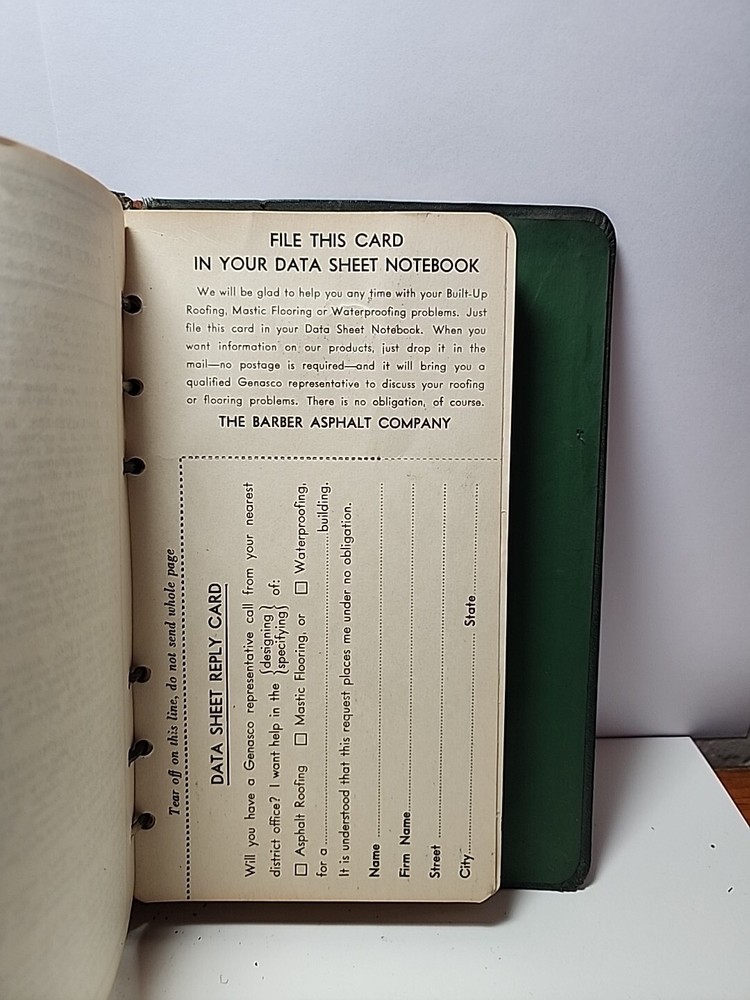 FILE THIS CARD
IN YOUR DATA SHEET NOTEBOOK
We will be glad to help you any time with your Built-Up
Roofing, Mastic Flooring or Waterproofing problems. Just
file this card in your Data Sheet Notebook. When you
want information on our products, just drop it in the
mail—no postage is required—and it will bring you a
qualified Genasco representative to discuss your roofing
or flooring problems. There is no obligation, of course.
THE BARBER ASPHALT COMPANY
Tear off on this line, do not send whole page
DATA SHEET REPLY CARD
Will you have a Genasco representative call from your nearest
district office? I want help in the {designing} of:
{specifying}
☐ Asphalt Roofing ☐ Mastic Flooring, or ☐ Waterproofing,
for a building.
It is understood that this request places me under no obligation.
Name
Firm Name
Street
City State